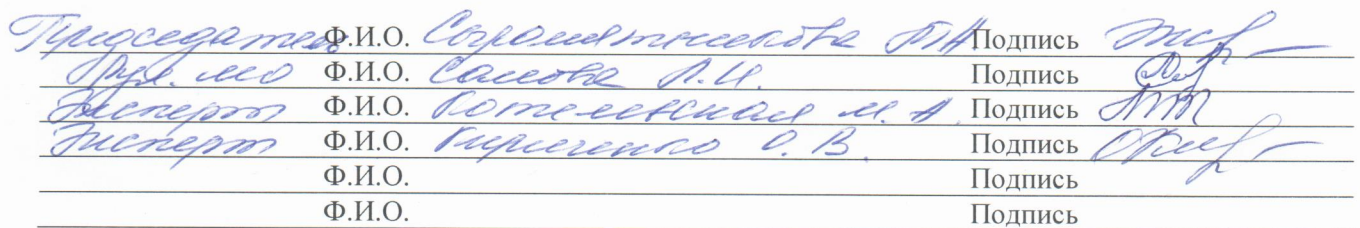 Председатель Ф.И.О. Сыромятникова Подпись
Рук. мо Ф.И.О. Саистова Л.И. Подпись
Эксперт Ф.И.О. Котелевская М. А. Подпись
Эксперт Ф.И.О. Кириченко О. В. Подпись
Ф.И.О. Подпись
Ф.И.О. Подпись